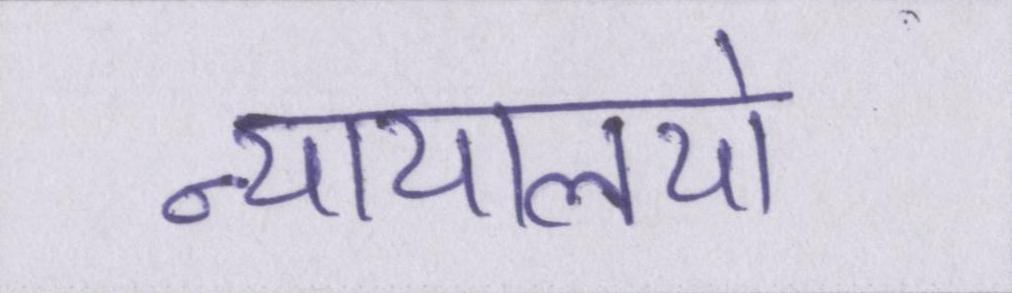 न्यायालयो